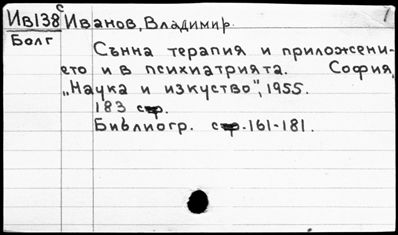 Ив138с Иванов, Владимир. 1
Болг
Сънна терапия и приложени-
ето и в психиатрията. София,
„Наука и изкуство", 1955.
183 стр.
Библиогр. стр. 161-181.